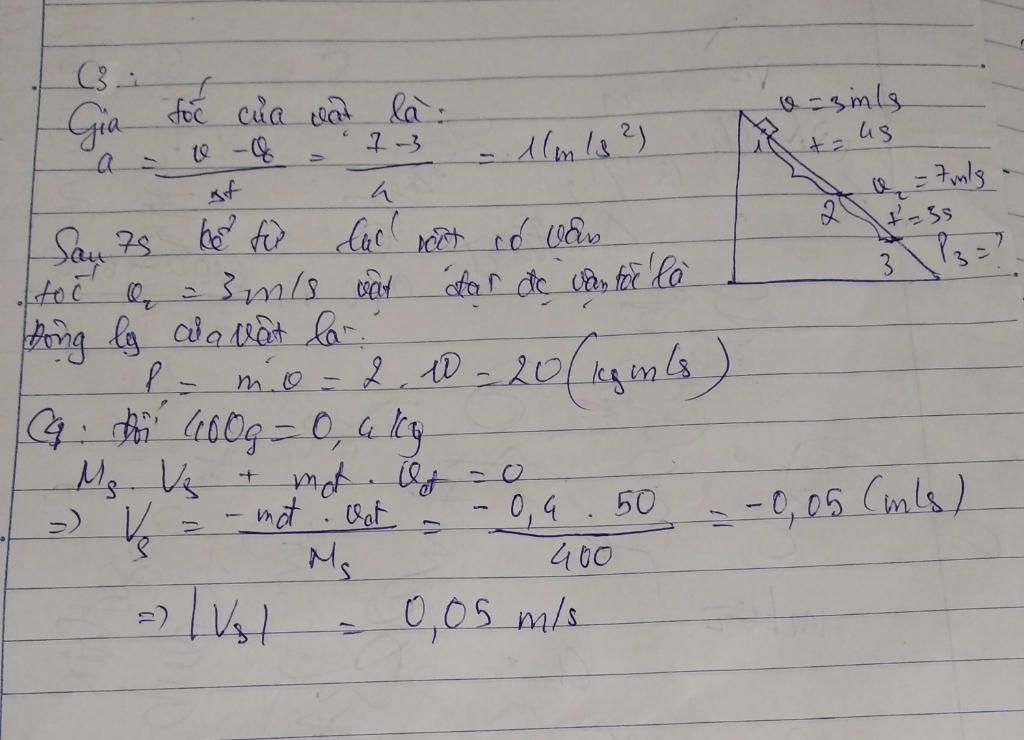 C3:
Gia tốc của vật là:
a = v - v₀ / Δt = 7 - 3 / 4 = 1 (m/s²)
v = 3m/s
1 t = 4s
v₂ = 7m/s
2 t' = 3s
3 P₃ = ?
Sau 7s kể từ lúc vật có vận
tốc v₂ = 3m/s vật đạt đc vận tốc là
Động lg của vật là:
P = m.v = 2.10 = 20 (kgm/s)
C4: Đổi 400g = 0,4kg
Ms. Vs + mđ. vđ = 0
=> Vs = -mđ. vđ / Ms = -0,4 . 50 / 400 = -0,05 (m/s)
=> |Vs| = 0,05 m/s